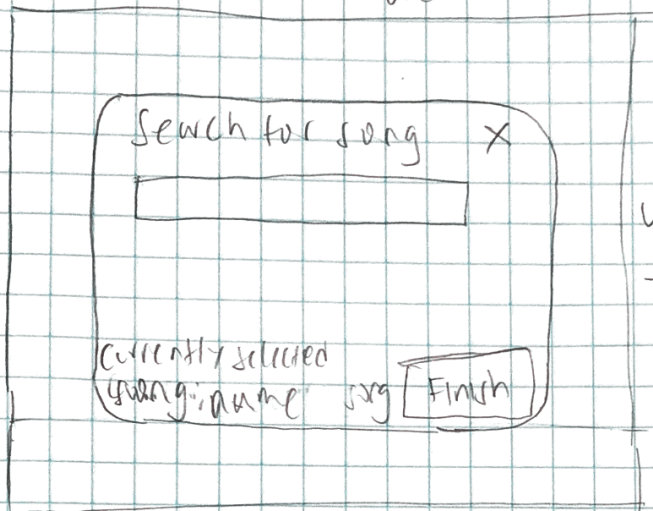 Search for song X
Currently selected
song: name song Finish